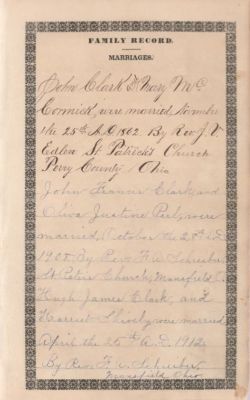 FAMILY RECORD.
MARRIAGES.
John Clark & Mary Mc
Cormick, were married Novembr
the 25th A.D 1862 By Rev J. V.
St Patrick's Church
Perry County, Ohio
John Francis Clark and
Oliva Justine Peil, were
married, October the 28th A.D.
1908 By Rev. F. A. Schreiber
St Peters Church, Mansfield, O.
Hugh James Clark, and
Harriet Shively were married
April the 25th A.D. 1912
By Rev. F. A. Schreiber
Mansfield, Ohio